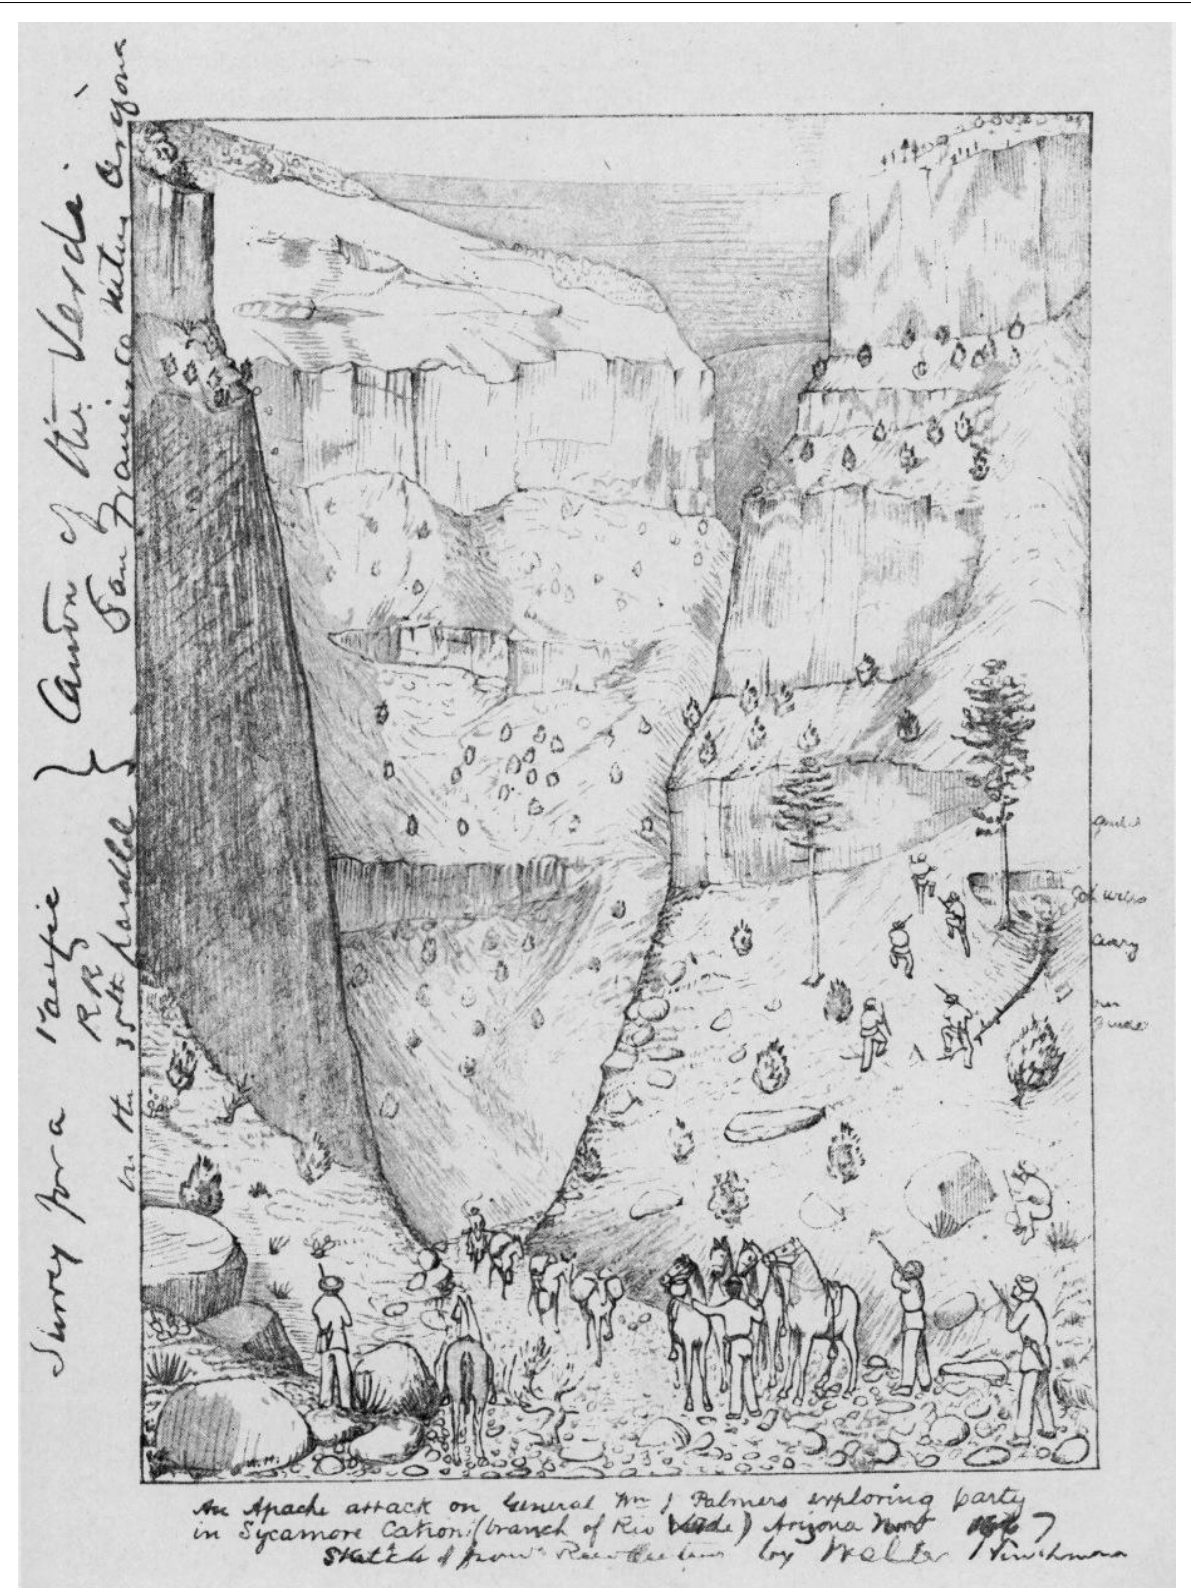 Survey for a Pacific
RR
on the 35th parallel } Cañon of the Verde
San Francisco Arizona
John
Avery
our
guide
An Apache attack on General Wm J Palmers exploring party
in Sycamore Cañon (branch of Rio Verde) Arizona 1867
Sketched from Recollection by